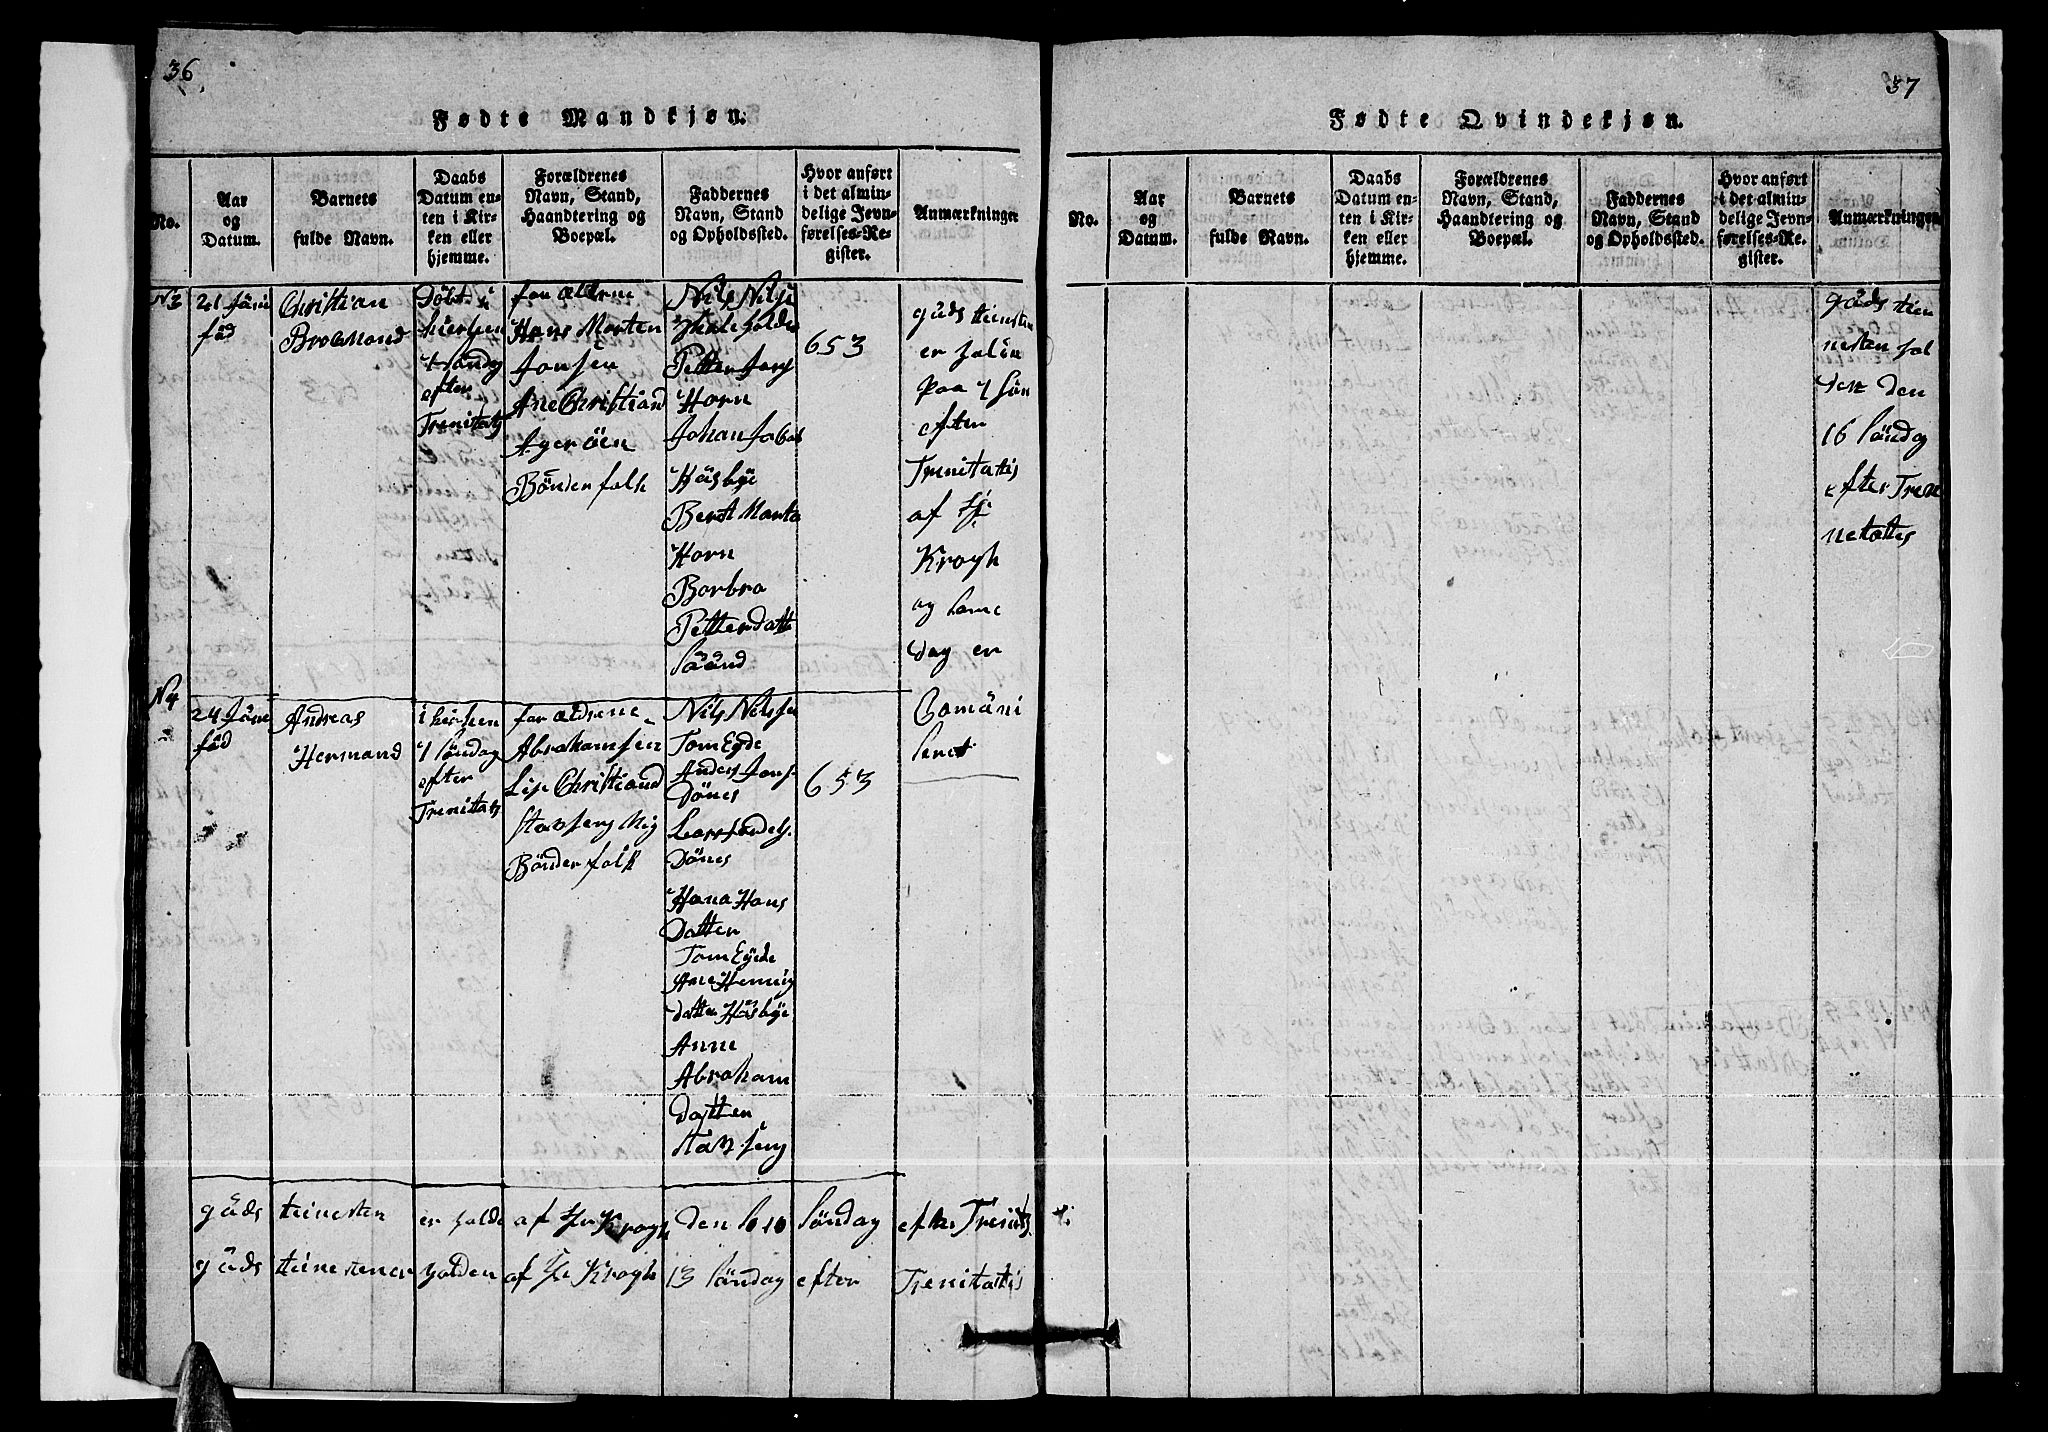 36
Fødte Mandkjøn.
No.
Aar
og
Datum.
Barnets
fulde Navn.
Daabs
Datum en-
ten i Kir-
ken eller
hjemme.
Forældrenes
Navn, Stand,
Haandtering og
Boepæl.
Faddernes
Navn, Stand
og Opholdssted.
Hvor anført
i det almin-
delige Jevn-
førelses-Re-
gister.
Anmærkninger
N3
21 Jüni
föd
Christian
Brochmand
Döbt i
kierken
4 söndg
efter
Trenitatz
for ældrene
Hans Morten
Jonsen
Ane Christiand
Ager öen
Bönder folk
Nils Nilse
Petter Jons
Horn
Johan Jakob
Häsbye
Berit Marta
Horn
Borbro
Petterdatter
653
güds tienesten
er
paa 4 sön
efter
Trenitatis
af Hr
Krogh
og same
dag er
Comüni
seret
N4
24 Jüni
föd
Andreas
Hermand
i kirken
4 söndag
efter
Trenitatz
for ældrene
Abrahamsen
Lise Christiand
Bönder folk
Nils Nelssen
Tom Egde
Anders Jons
Dönes
Dönes
Hana Hans
Datter
Tom Egede
Ane Hennig
datter Häsbye
Anne
Abraham
Datter
653
güds tienesten er holde af Hr Krogh den 10 söndag efter Trenitatis
güds tienestener holden af Hr Krogh 13 söndag efter Trenitatis
37
Fødte Qvindekjøn.
No.
Aar
og
Datum.
Barnets
fulde Navn.
Daabs
Datum en-
ten i Kir-
ken eller
hjemme.
Forældrenes
Navn, Stand,
Haandtering og
Boepæl.
Faddernes
Navn, Stand
og Opholdssted.
Hvor anført
i det almin-
delige Jevn-
førelses-Re-
gister.
Anmærkninger
güds tien
nesten hol
den den
16 söndag
efter Tren
netattes